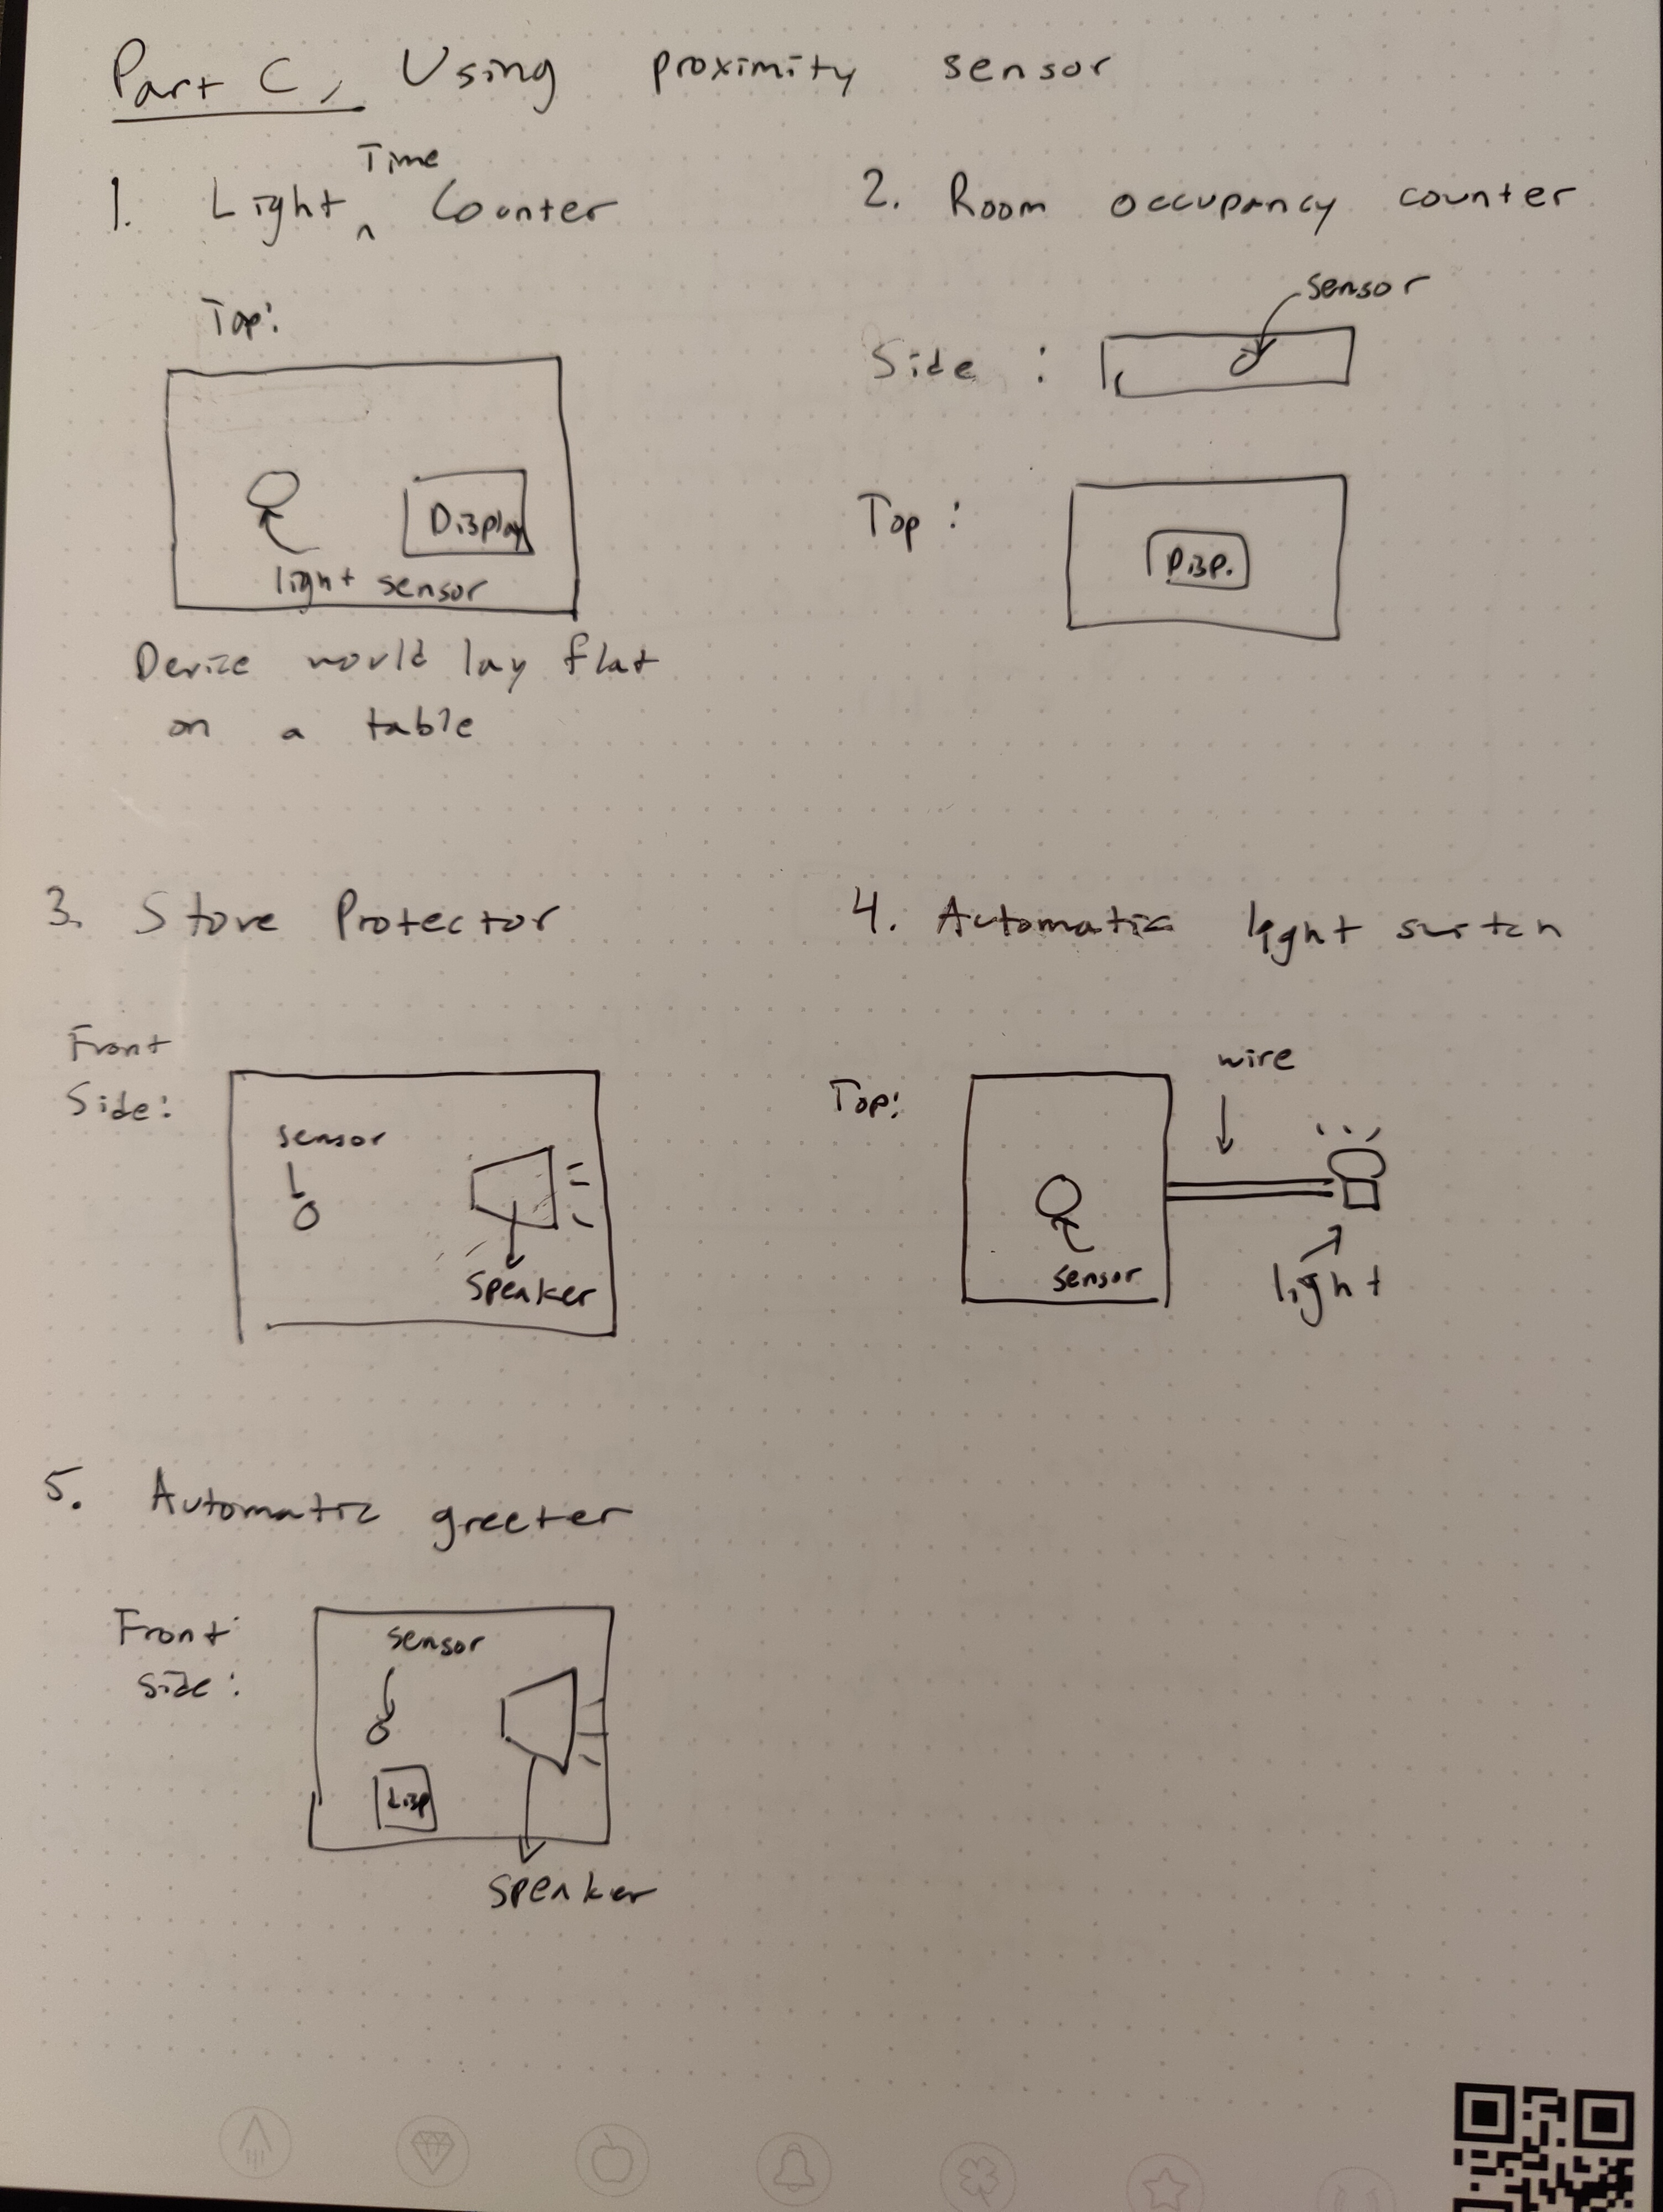 Part C, Using proximity sensor
1. Light ^ Time Counter
Top:
Display
light sensor
Device would lay flat
on a table
2. Room occupancy counter
sensor
Side :
Top :
Disp.
3. Store Protector
Front
Side:
sensor
Speaker
4. Automatic light switch
wire
Top:
sensor
light
5. Automatic greeter
Front
side:
sensor
Disp
Speaker